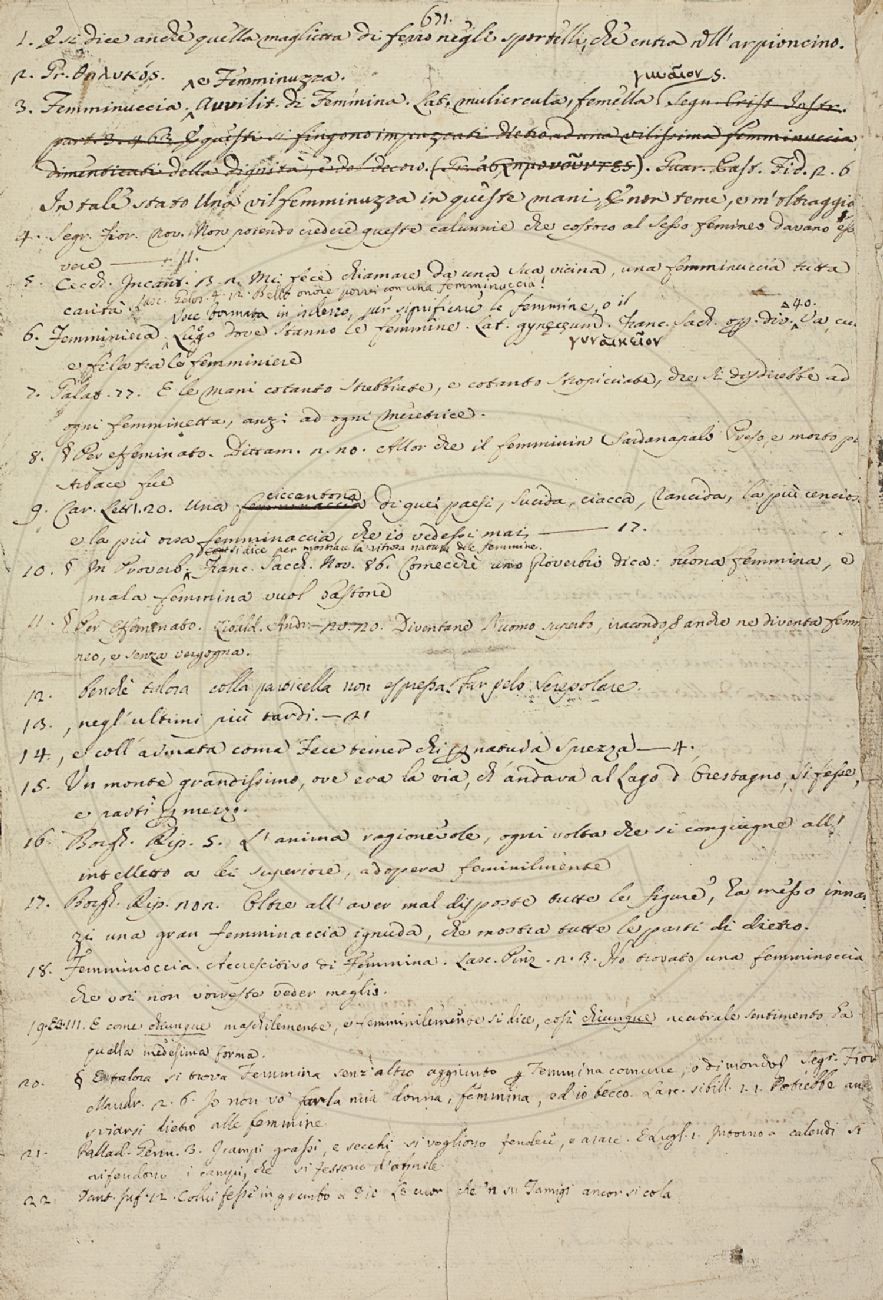 671.
1. E si dice anche quella maglietta di ferro negli sportelli, che entra nell'arpioncino.
2. Gr. θηλυκός.
3. Femminuccia, e Femminuzza. Avvilit. di Femmina. Lat. muliercula, femella γυναῖον s. Segn. Crist. Instr.
part. 3. 4 63. E questi si fingono impazzati dietro ad una vilissima femminuccia
dimenticati della dignità, e del decoro. ( ). Guar. Past. Fid. 2. 6
In tale stato Una vil femminuzza in queste mani, E non teme, e m'oltraggia
4. Segr. Fior. Nov. Non potendo credere queste calunnie che costoro al sesso femineo davano esser
vere — 11.
5. Cecch. Incant. 13. 2. Mi fece chiamare da una sua vicina, una femminuccia tutta
carità. Lasc. Gelos. 4. 12. Bello onore porvi con una femminuccia!
Voce formata in ischerzo, per significare le femmine, o il
6. Femminiera. Lugo dove stanno le femmine. Lat. gynęceum. γυναικεῖον Franc. Sacch. op. div. 40. Va, cu-
e fila tra le femminiere
7. Galat. 77. E le mani cotanto strebbiate, e cotanto stropicciate, che si disdirebbe ad
ogni femminetta, anzi ad ogni Meretrice.
8. § Per effeminato. Dittam. 2. 20. Allor che il femminin Sardanapalo Preso, e morto per
Arbace fue
9. Car. Lett. 1. 20. Una femminaccia ciccantona di quei paesi, sucida, ciacca, rancida, la più cencios
e la più orsa femminaccia, che io vedessi mai — 17.
e così si dice per mostrar la ritrosa natura delle femmine.
10. § In Proverb. Franc. Sacch. Nov. 86. Comecchè uno Proverbio dica: buona femmina, e
mala femmina vuol bastone
11. § Per Effeminato. Libald. Andr. 120. Diventane l'uomo superbo, iracondo, e anche ne diventa femmi-
neo, e senza vergogna.
12. benchè talora colla particella non espressa. Far pelo. Screpolare.
13. , negl'ultimi più tardi. — 21
14. , e coll'armata coma Fece tener chi natura sprezza — 4.
15. Un monte grandissimo, ove era la via, ch'andava al Lago d'Orestagno, si fesse,
e partì mezzo.
16. Borgh. Rip. 5. L'anima ragionevole, ogni volta che si congiugne all'
intelletto a lei superiore, adopera feminilmente
17. Borgh. Rip. 202. Oltre all'aver mal disposte tutte le figure, ha messo innan-
zi una gran femminaccia ignuda, che mostra tutte le parti di dietro.
18. Femminoccia. Accrescitivo di Femmina. Lasc. Pinz. 2. 3. Ho trovato una femminoccia
che voi non vorreste veder meglio.
19. E come chiunque maschilmente, e femminilmente si dice, così chiunque neutrale sentimento ha
quella medesima forma.
20. § E talora si trova Femmina senz'altro aggiunto per Femmina comune, o di mondo. Segr. Fior.
Mandr. 2. 6. Io non vo' far la mia donna, femmina, ed io becco. Lasc. sibill. 2.1. Potrebbe av
sviarsi dietro alle femmine
21. Pallad. Genn. 3. I campi grassi, e secchi si vogliono fendere, e arare. E Lugl. 1. Intorno a calendi si
rifendono i campi, che si fessono d'aprile
22. Dant. Inf. 12. Colui fesse in grembo a Dio Lo cuor che 'n su Tamigi ancor si cola